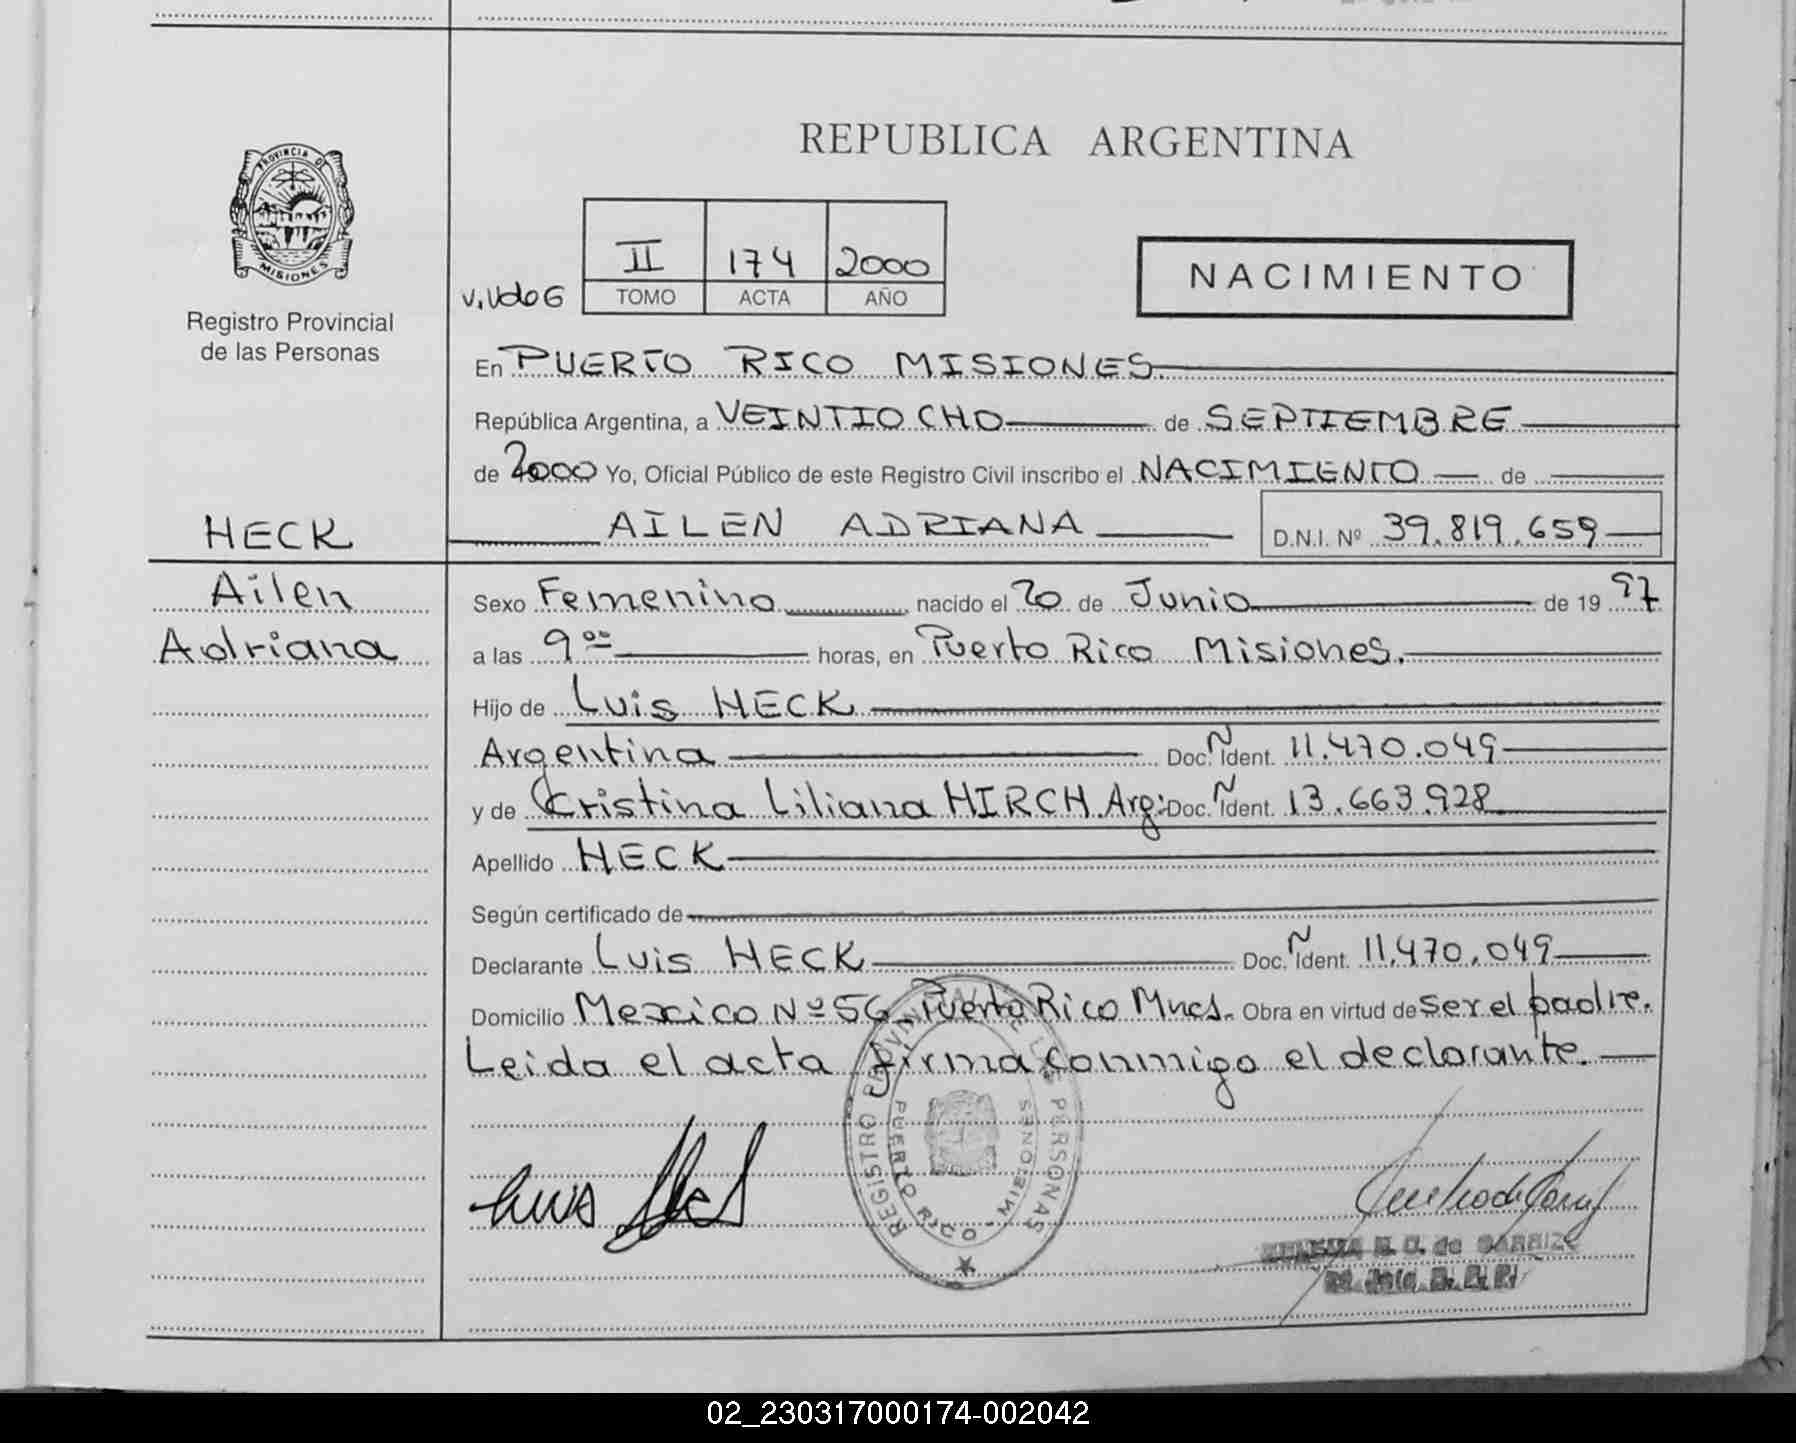 REPUBLICA ARGENTINA
PROVINCIA DE
MISIONES
Registro Provincial
de las Personas
II 174 2000
V.Udo G TOMO ACTA AÑO
NACIMIENTO
En PUERTO RICO MISIONES.
República Argentina, a VEINTIOCHO de SEPTIEMBRE
de 2000 Yo, Oficial Público de este Registro Civil inscribo el NACIMIENTO de
HECK
AILEN ADRIANA D.N.I. Nº 39.819.659
Ailen
Adriana
Sexo Femenino nacido el 20 de Junio de 19 97
a las 9 00 horas, en Puerto Rico Misiones.
Hijo de Luis HECK
Argentina Doc. Ident. 11.470.049
y de Cristina Liliana HIRCH. Arg: Doc. Ident. 13.663.928
Apellido HECK
Según certificado de
Declarante Luis HECK Doc. Ident. 11.470.049
Domicilio Mexico Nº 56 Puerto Rico Mnes. Obra en virtud de ser el padre.
Leida el acta firma conmigo el declarante.
REGISTRO PROVINCIAL DE LAS PERSONAS
PUERTO RICO - MISIONES
Luis
de
02_230317000174-002042